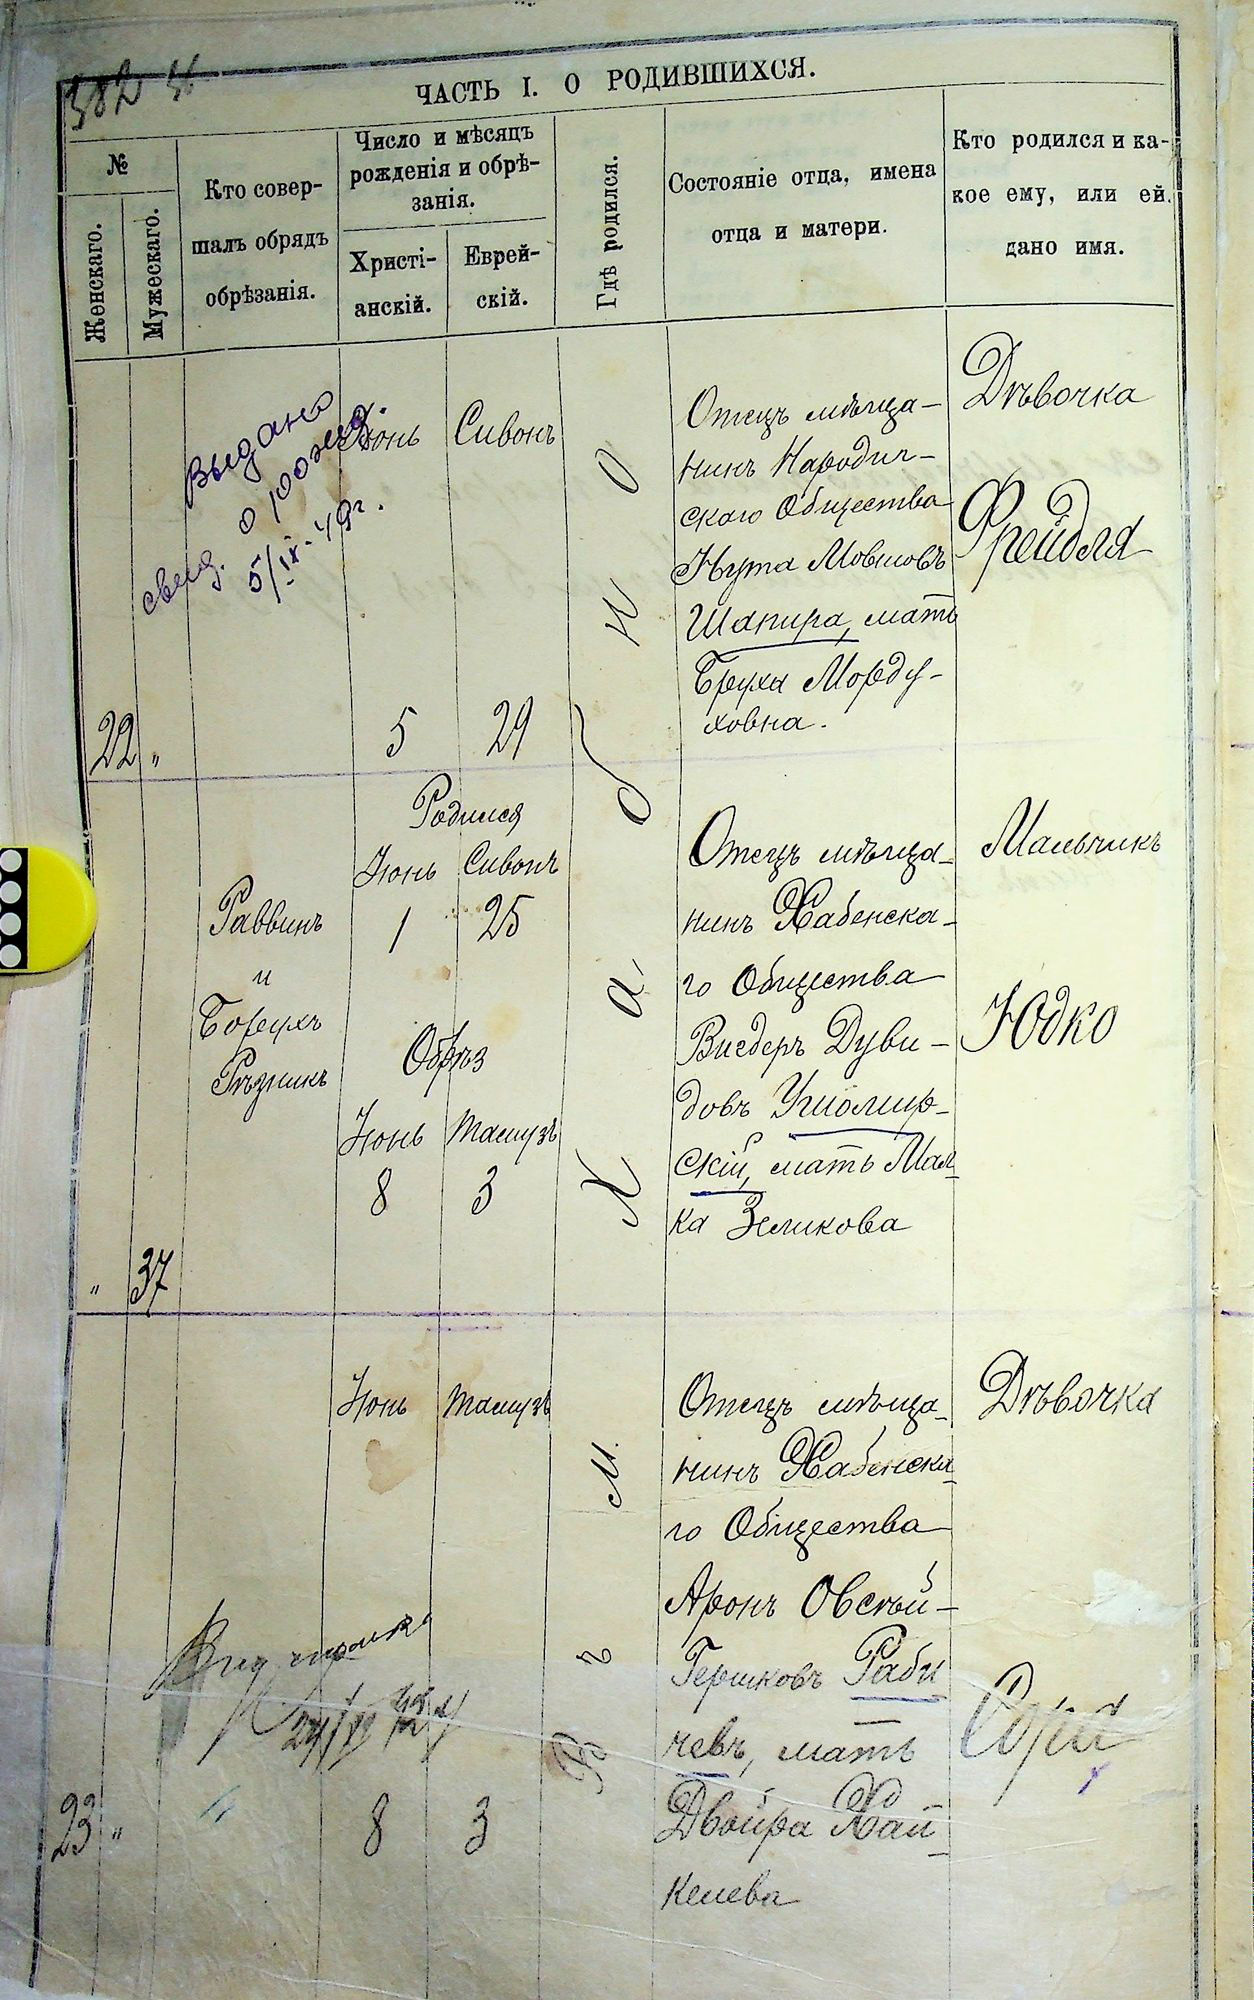 382
ЧАСТЬ I. О РОДИВШИХСЯ.
№
Женскаго.
Мужескаго.
Кто совер-
шалъ обрядъ
обрѣзанія.
Число и мѣсяцъ
рожденія и обрѣ-
занія.
Христі-
анскій.
Еврей-
скій.
Гдѣ родился.
Состояніе отца, имена
отца и матери.
Кто родился и ка-
кое ему, или ей
дано имя.
Въ м. Хабно
Выдано
свид. о рожд.
5/IX-49г.
22 "
Іюнь Сивонъ
5 29
Отецъ мѣща-
нинъ Народич-
скаго Общества
Нута Мовшовъ
Шапира, мать
Бруха Морду-
ховна.
Дѣвочка
Фрейдля
" 37
Раввинъ
и
Борухъ
Рѣзникъ
Родился
Іюнь Сивонъ
1 25
Обрѣз
Іюнь Тамузъ
8 3
Отецъ мѣща-
нинъ Хабенска-
го Общества
Вигдеръ Дуви-
довъ Ушомир-
скій, мать Мал-
ка Зеликова
Мальчикъ
Юдко
23 "
Іюнь Тамузъ
8 3
Отецъ мѣща-
нинъ Хабенска-
го Общества
Аронъ Овсѣй-
Гершковъ Раби
чевъ, мать
Двойра Хай-
келева
Дѣвочка
Сура